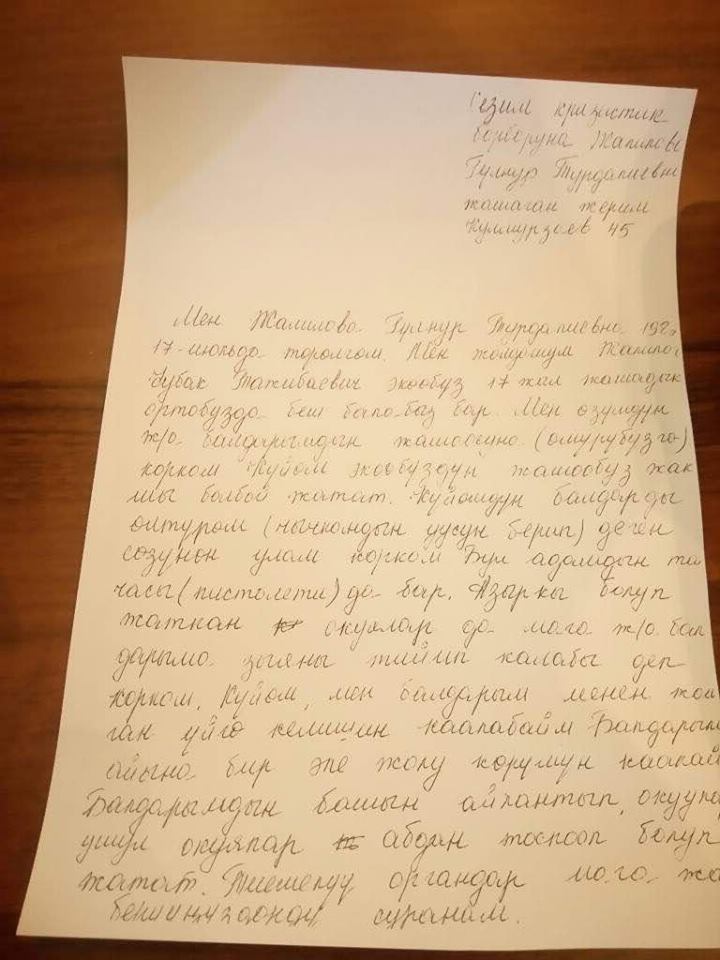 Сезим кризистик
борборуна Жамилова
Гулнур Турдалиевна
жашаган жерим
Кулмурзаев 45
Мен Жамилова Гулнур Турдалиевна
17-июльда торолгом. Мен жолдошум
Чубак Тажибаевич экообуз 17 жыл жашадык
ортобузда беш бала-быз бар. Мен озумдун
ж/а балдарымдын жашоосуна (омурубузго)
корком Куйом экообуздун жашообуз жак
шы болбой жатат. Куйомдун балдарды
олтуром (чычкандын уусун берип) деген
созунон улам корком Бул адамдын та
часы (пистолети) да бар. Азыркы болуп
жаткан окуялар да мага ж/а бал
дарыма зыяны тийип калабы деп
корком. Куйом, мен балдарым менен жаш
ган уйго келишин каалабайм Балдарым
айына бир эле жолу корушун каалай
Балдарымдын башын айлантып,
ушул окуялар абдан тоскоол болуп
жатат. Тиешелуу органдар мага жа
суранам.